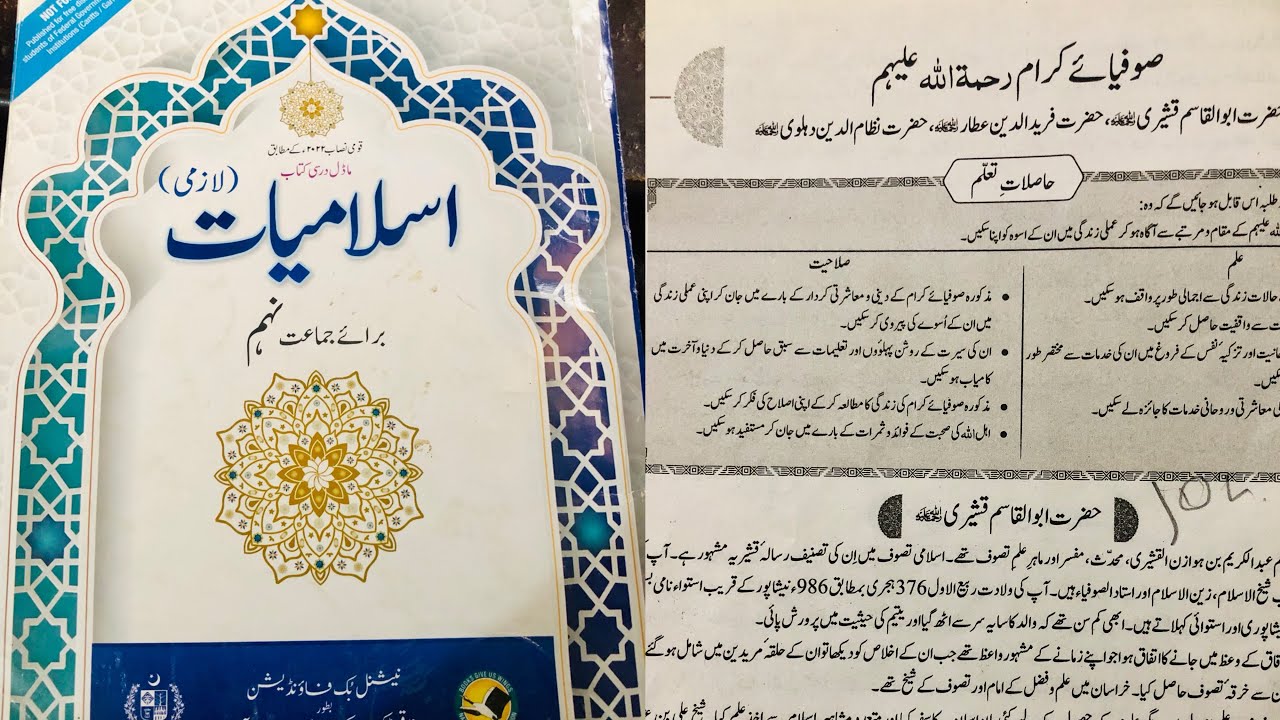 NOT FO
Published for free dis
students of Federal Governm
Institutions (Cantts / Gar
قومی نصاب ۲۰۲۲ء کے مطابق
ماڈل درسی کتاب
اسلامیات (لازمی)
برائے جماعت نہم
نیشنل بک فاؤنڈیشن
بطور
BOOKS GIVE US WINGS
صوفیائے کرام رحمۃ اللہ علیہم
حضرت ابوالقاسم قشیری رحمۃ اللہ علیہ، حضرت فریدالدین عطار رحمۃ اللہ علیہ، حضرت نظام الدین دہلوی رحمۃ اللہ علیہ
حاصلاتِ تعلّم
طلبہ اس قابل ہو جائیں گے کہ وہ:
اللہ علیہم کے مقام و مرتبے سے آگاہ ہو کر عملی زندگی میں ان کے اسوہ کو اپنا سکیں۔
علم
حالات زندگی سے اجمالی طور پر واقف ہو سکیں۔
ت سے واقفیت حاصل کر سکیں۔
انیت اور تزکیۂ نفس کے فروغ میں ان کی خدمات سے مختصر طور
کیں۔
معاشرتی و روحانی خدمات کا جائزہ لے سکیں۔
صلاحیت
• مذکورہ صوفیائے کرام کے دینی و معاشرتی کردار کے بارے میں جان کر اپنی عملی زندگی
میں ان کے اُسوے کی پیروی کر سکیں۔
• ان کی سیرت کے روشن پہلوؤں اور تعلیمات سے سبق حاصل کر کے دنیا و آخرت میں
کامیاب ہو سکیں۔
• مذکورہ صوفیائے کرام کی زندگی کا مطالعہ کر کے اپنی اصلاح کی فکر کر سکیں۔
• اہل اللہ کی صحبت کے فوائد و ثمرات کے بارے میں جان کر مستفید ہو سکیں۔
حضرت ابوالقاسم قشیری رحمۃ اللہ علیہ
عبدالکریم بن ہوازن القشیری، محدّث، مفسر اور ماہرِ علمِ تصوف تھے۔ اسلامی تصوف میں اِن کی تصنیف رسالۂ قشیریہ مشہور ہے۔ آپ
شیخ الاسلام، زین الاسلام اور استاد الصوفیاء ہیں۔ آپ کی ولادت ربیع الاول 376 ہجری بمطابق 986ء نیشاپور کے قریب استواء نامی
شاپوری اور استوائی کہلاتے ہیں۔ ابھی کم سن تھے کہ والد کا سایہ سر سے اٹھ گیا اور یتیم کی حیثیت میں پرورش پائی۔
قاق کے وعظ میں جانے کا اتفاق ہوا جو اپنے زمانے کے مشہور واعظ تھے جب ان کے اخلاص کو دیکھا تو ان کے حلقۂ مریدین میں شامل ہو گئے
سے خرقۂ تصوف حاصل کیا۔ خراسان میں علم و فضل کے امام اور تصوف کے شیخ تھے۔